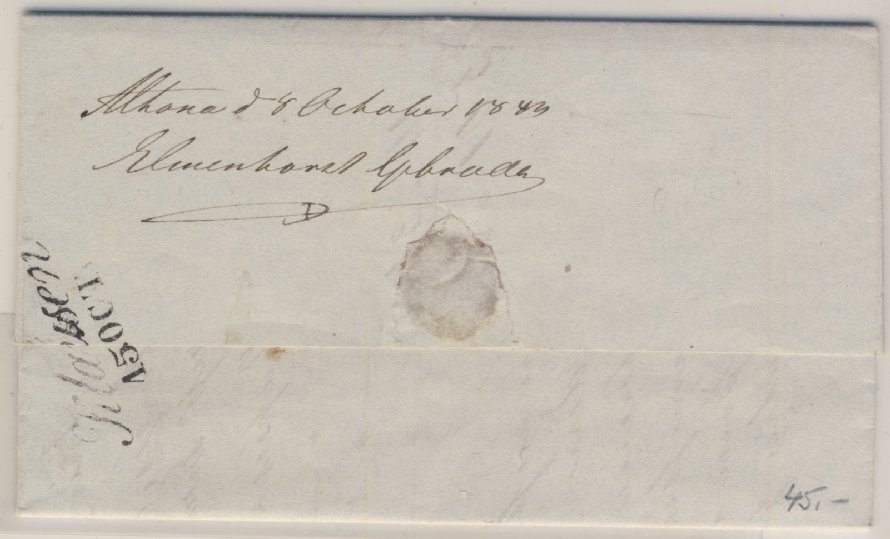 Altona d 8 October 1843
Elmenhorst Gebruder
15 OCT
45.-